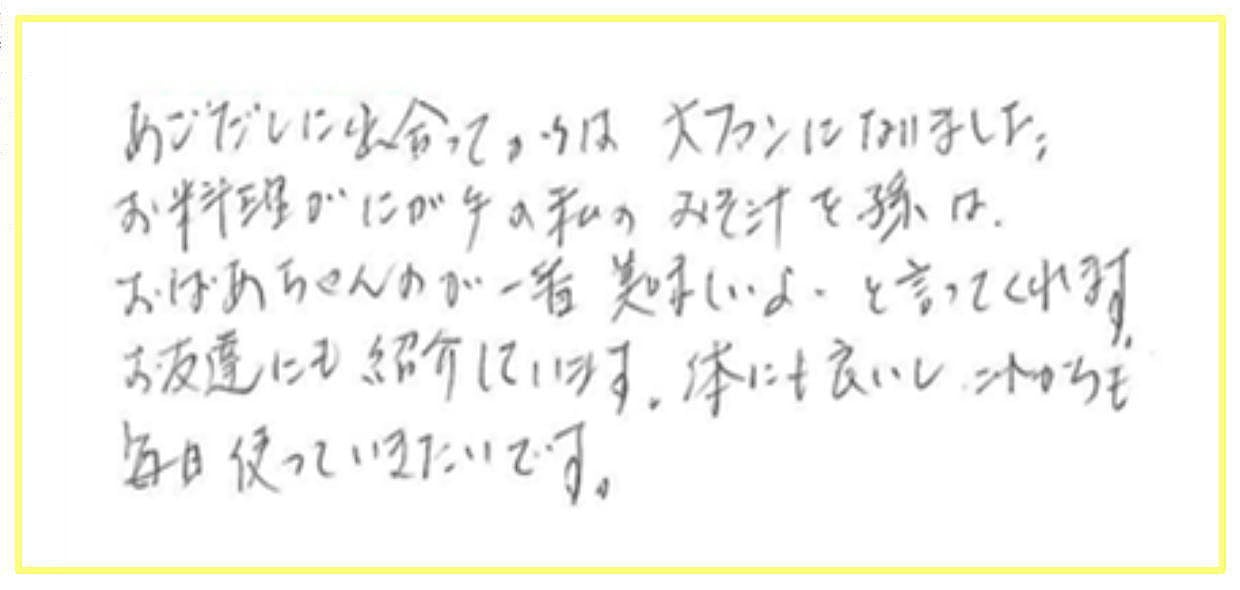 あごだしに出合ってからは 大ファンになりました。
お料理がにが手の私の みそ汁を孫は、
おばあちゃんのが一番 美味しいよ- と言ってくれます。
お友達にも紹介しています。体にも良いし これからも
毎日使っていきたいです。